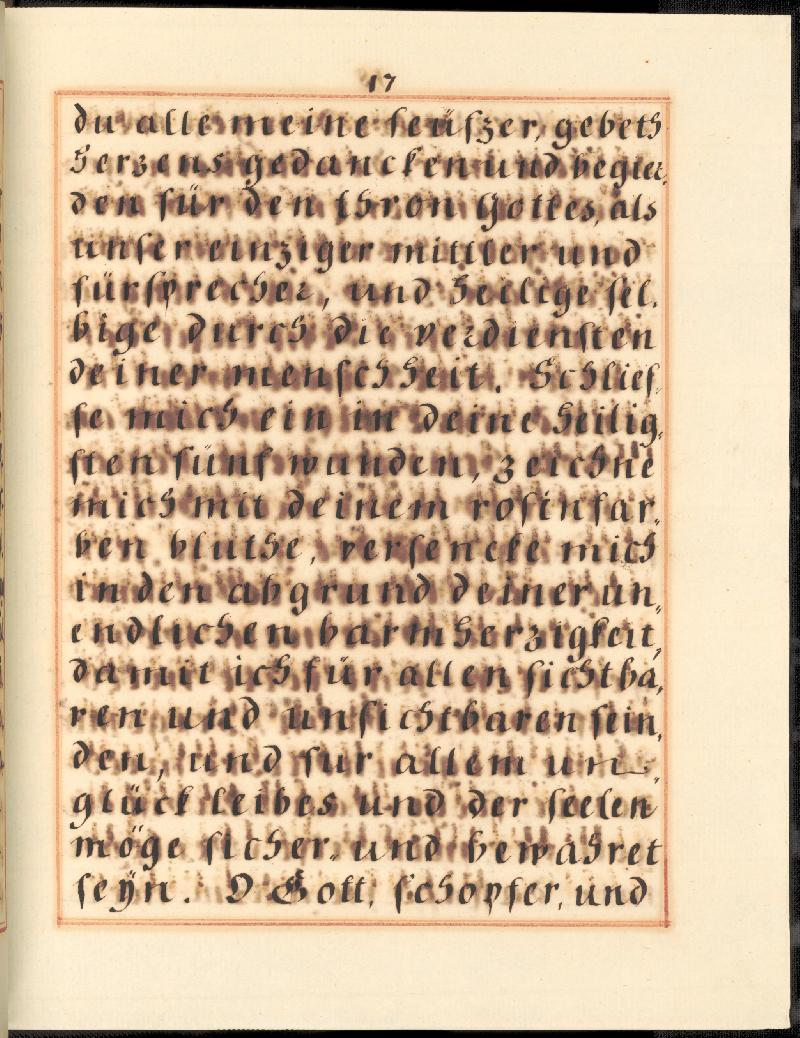 17
du alle meine seüfzer, gebeth
herzens gedancken und begier„
den für den thron Gottes, als
unser einziger mittler und
fürsprecher, und heilige sel„
bige durch die verdiensten
deiner menschheit. Schlies„
se mich ein in deine heilig„
sten fünf wunden, zeichne
mich mit deinem rosinfar„
ben bluthe, versencke mich
in den abgrund deiner un„
endlichen barmherzigkeit,
damit ich für allen sichtba„
ren und unsichtbaren fein„
den, und für allem un„
glück leibes und der seelen
möge sicher, und bewahret
seÿn. O Gott, schöpfer, und